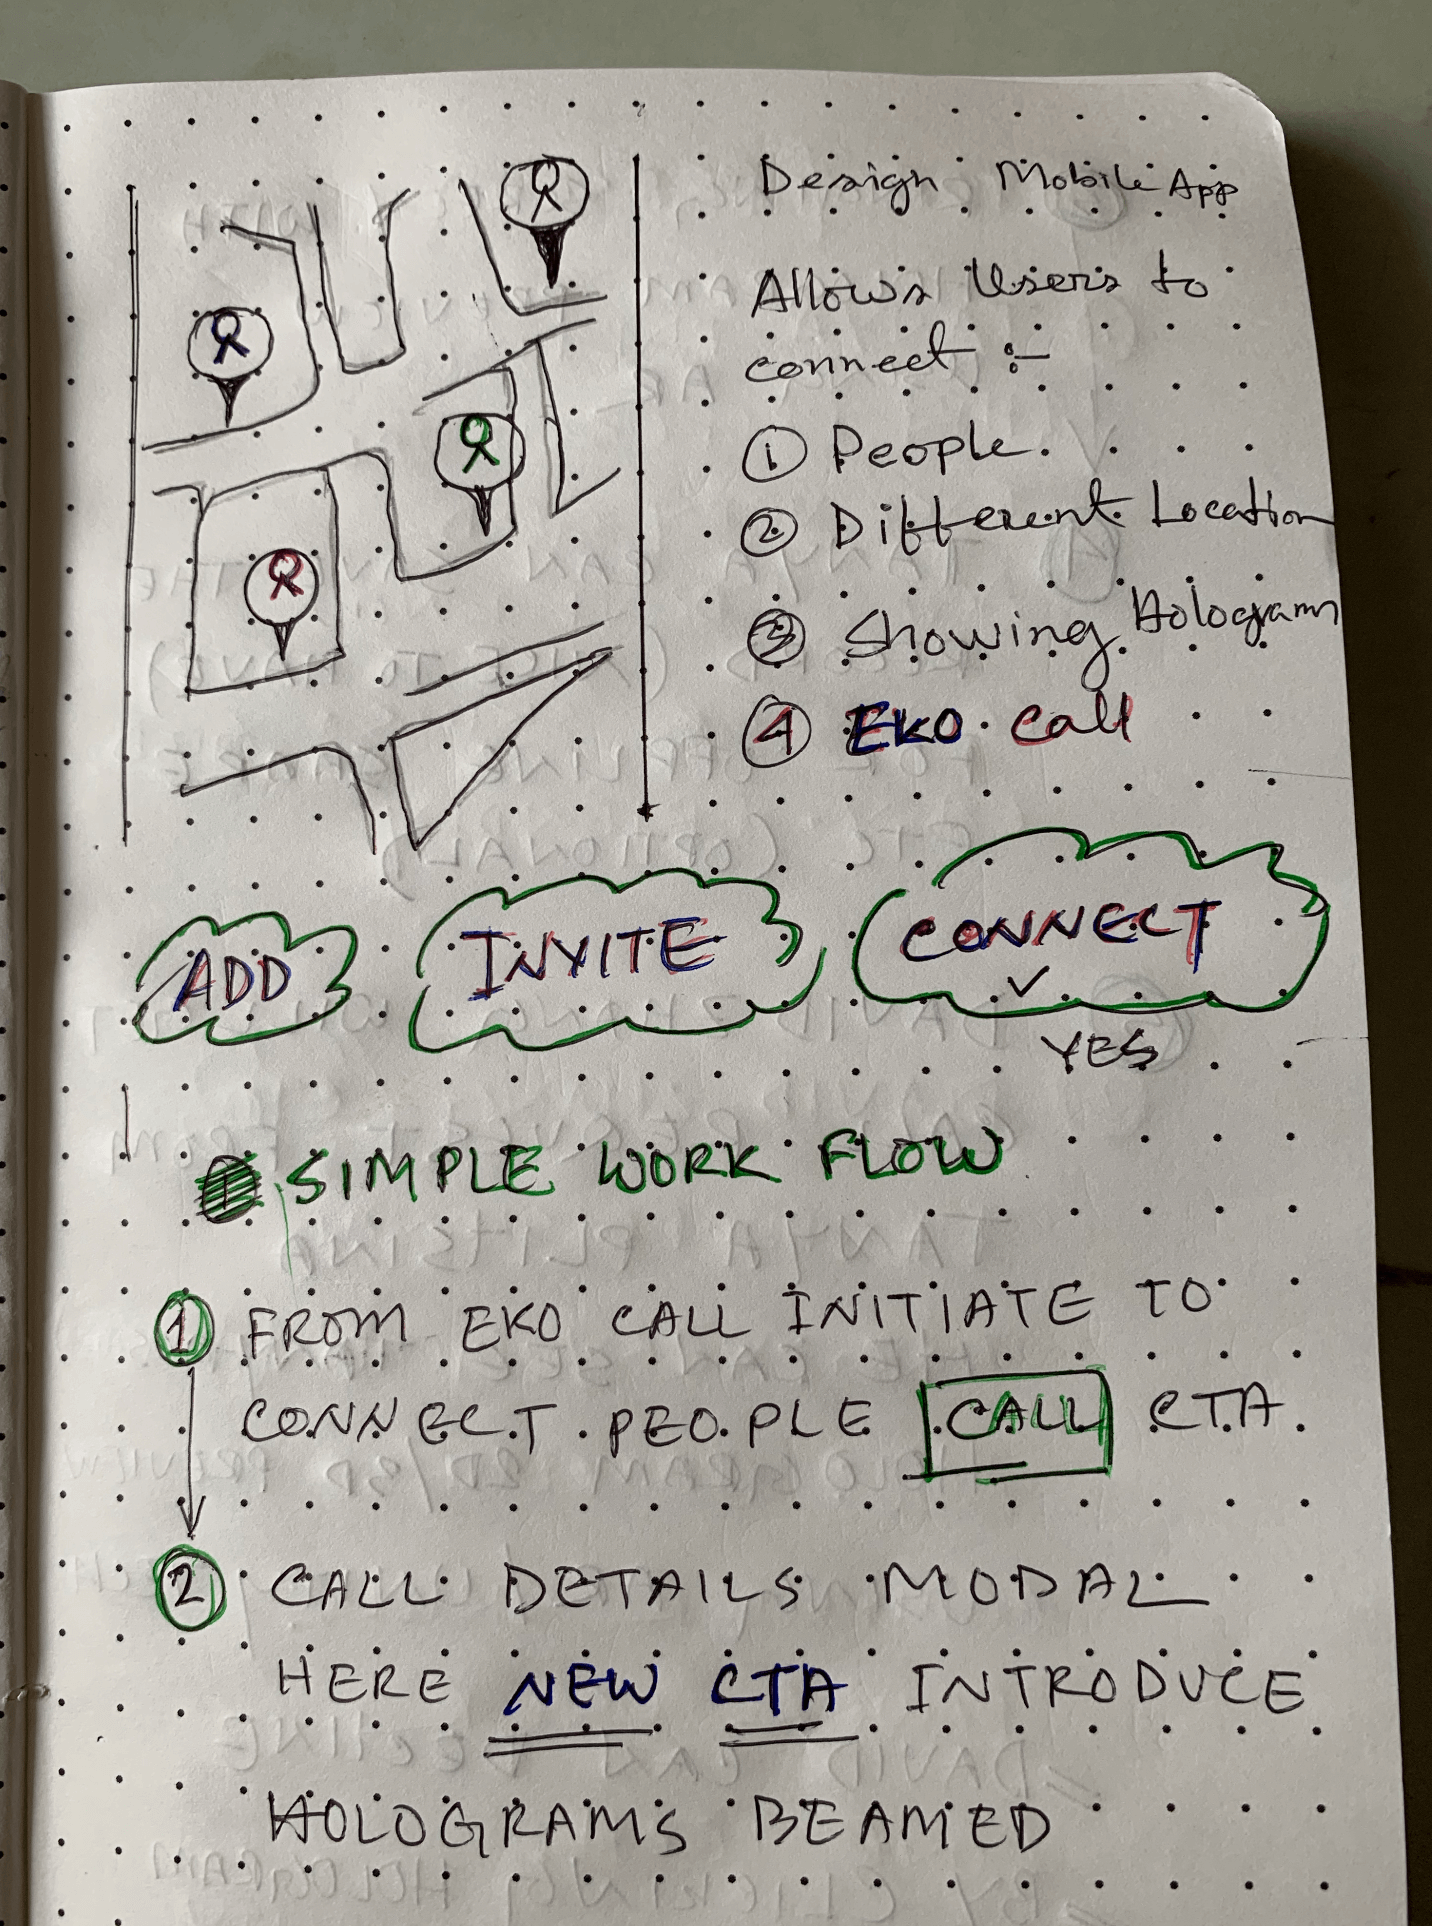 Design Mobile App
Allows Users to
connect :-
① People.
② Different Location
③ Showing Hologram
④ EKO Call
ADD
INVITE
CONNECT
✓
YES
SIMPLE WORK FLOW
① FROM EKO CALL INITIATE TO
CONNECT PEOPLE CALL CTA.
② CALL DETAILS MODAL
HERE NEW CTA INTRODUCE
HOLOGRAMS BEAMED